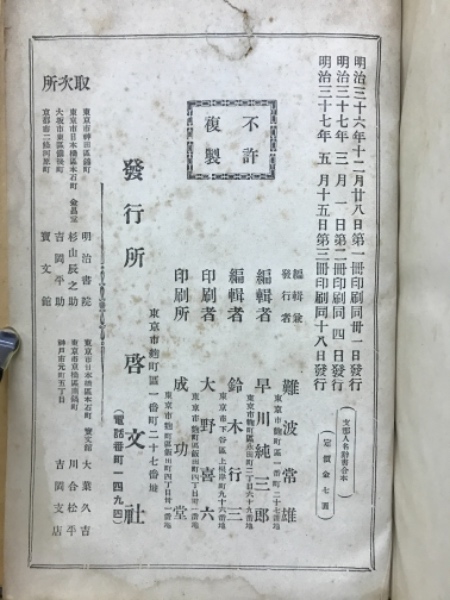 明治三十六年十二月廿八日第一冊印刷同卅一日發行
明治三十七年三月一日第二冊印刷同四日發行
明治三十七年五月十五日第三冊印刷同十八日發行
支那人名辭書合本
定價金七圓
不許
複製
編輯兼
發行者
難波常雄
東京市麴町區一番町二十七番地
編輯者
早川純三郎
東京市麴町區飯田町二丁目六十九番地
編輯者
鈴木行三
東京市下谷區上根岸町九十六番地
印刷者
大野喜六
東京市麴町區飯田町四丁目卅一番地
印刷所
成功堂
東京市麴町區飯田町四丁目卅一番地
東京市麴町區一番町二十七番地
發行所 啓文社
(電話番町一四九四)
取次所
東京市神田區錦町
明治書院
東京市日本橋區本石町 金昌堂
杉山辰之助
大坂市東區備後町
吉岡平助
京都市二條河原町
寶文館
東京市日本橋區本石町 寶文館
大葉久吉
東京市京橋區南鍋町
川合松平
神戸市元町五丁目
吉岡支店